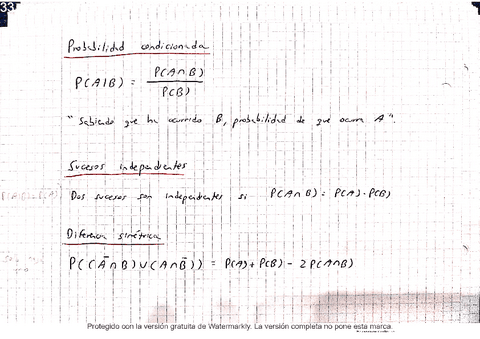 33
Probabilidad condicionada
P(A|B) = P(A∩B) / P(B)
"Sabiendo que ha ocurrido B, probabilidad de que ocurra A".
Sucesos independientes
Dos sucesos son independientes si P(A∩B) = P(A)·P(B)
Diferencia simétrica
P((Ā∩B)∪(A∩B̄)) = P(A)+P(B) - 2P(A∩B)
Protegido con la versión gratuita de Watermarkly. La versión completa no pone esta marca.